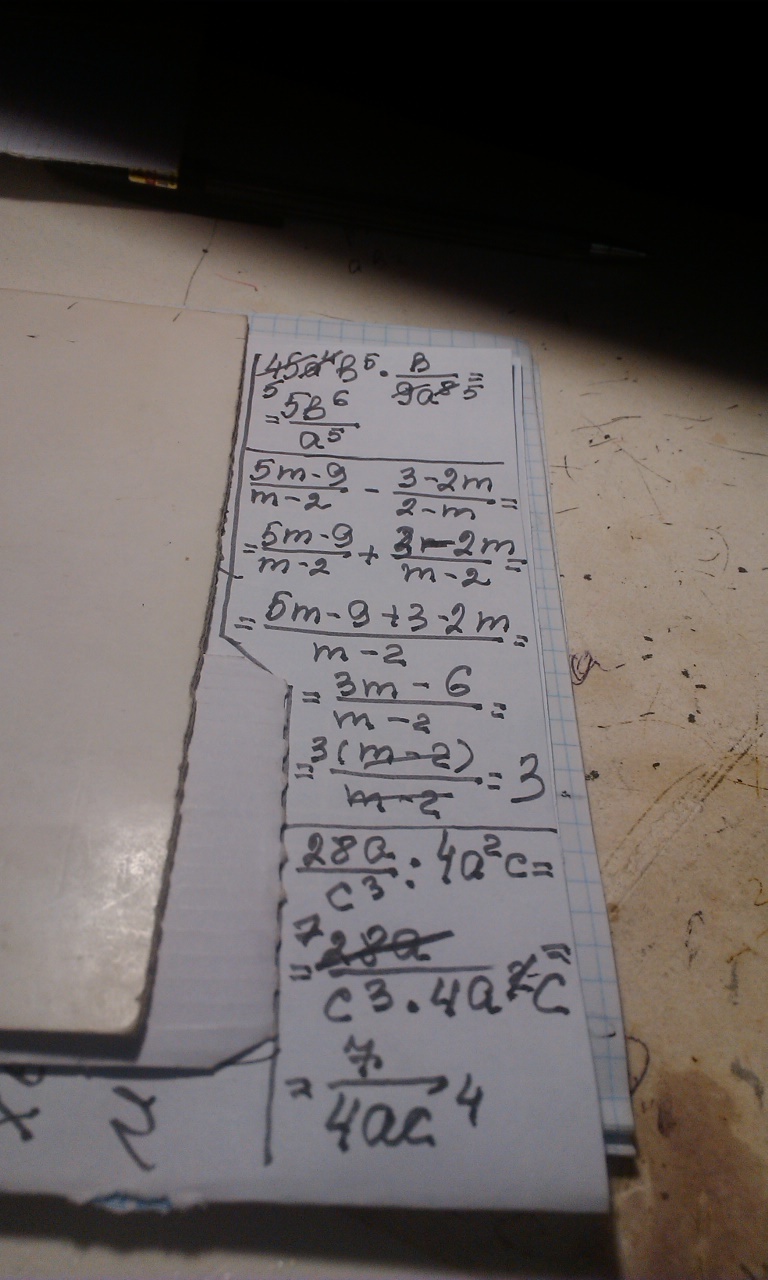 45a⁴B⁵ · B/9a⁸ =
5 5
= 5B⁶/a⁵
(5m-9)/(m-2) - (3-2m)/(2-m) =
= (5m-9)/(m-2) + (3-2m)/(m-2) =
= (5m-9+3-2m)/(m-2) =
= (3m-6)/(m-2) =
= 3(m-2)/(m-2) = 3
28a/c³ : 4a²c =
= 7 28a/(c³·4a²c) =
= 7/4ac⁴